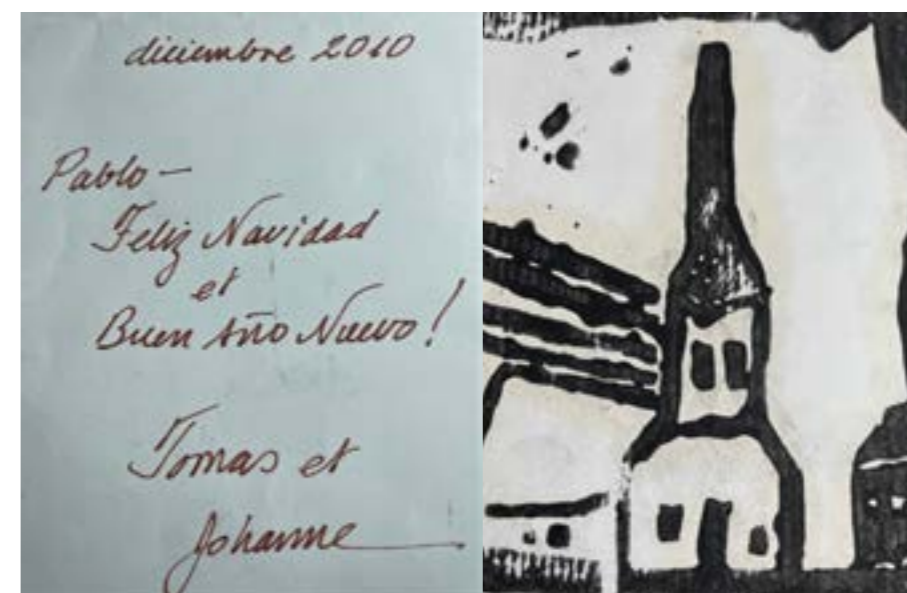 diciembre 2010
Pablo —
Feliz Navidad
et
Buen Año Nuevo!
Tomas et
Johanne